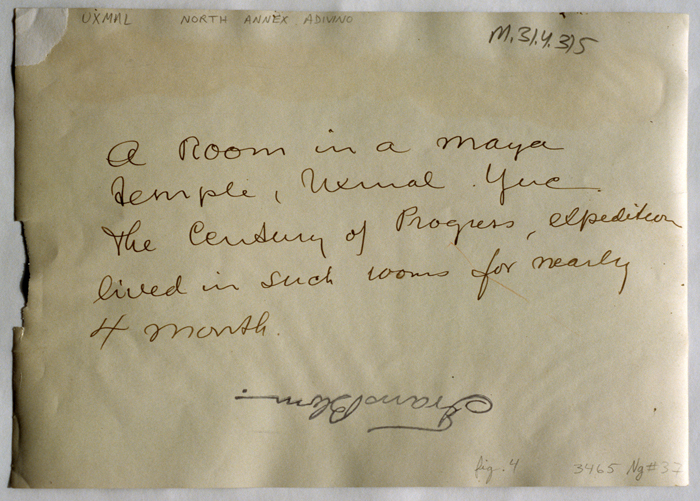 UXMAL NORTH ANNEX ADIVINO
M.31.Y.315
A Room in a maya
temple, Uxmal. Yuc.
The Century of Progress, expedition
lived in such rooms for nearly
4 month.
Frans Blom.
fig. 4 3465 Ng#37